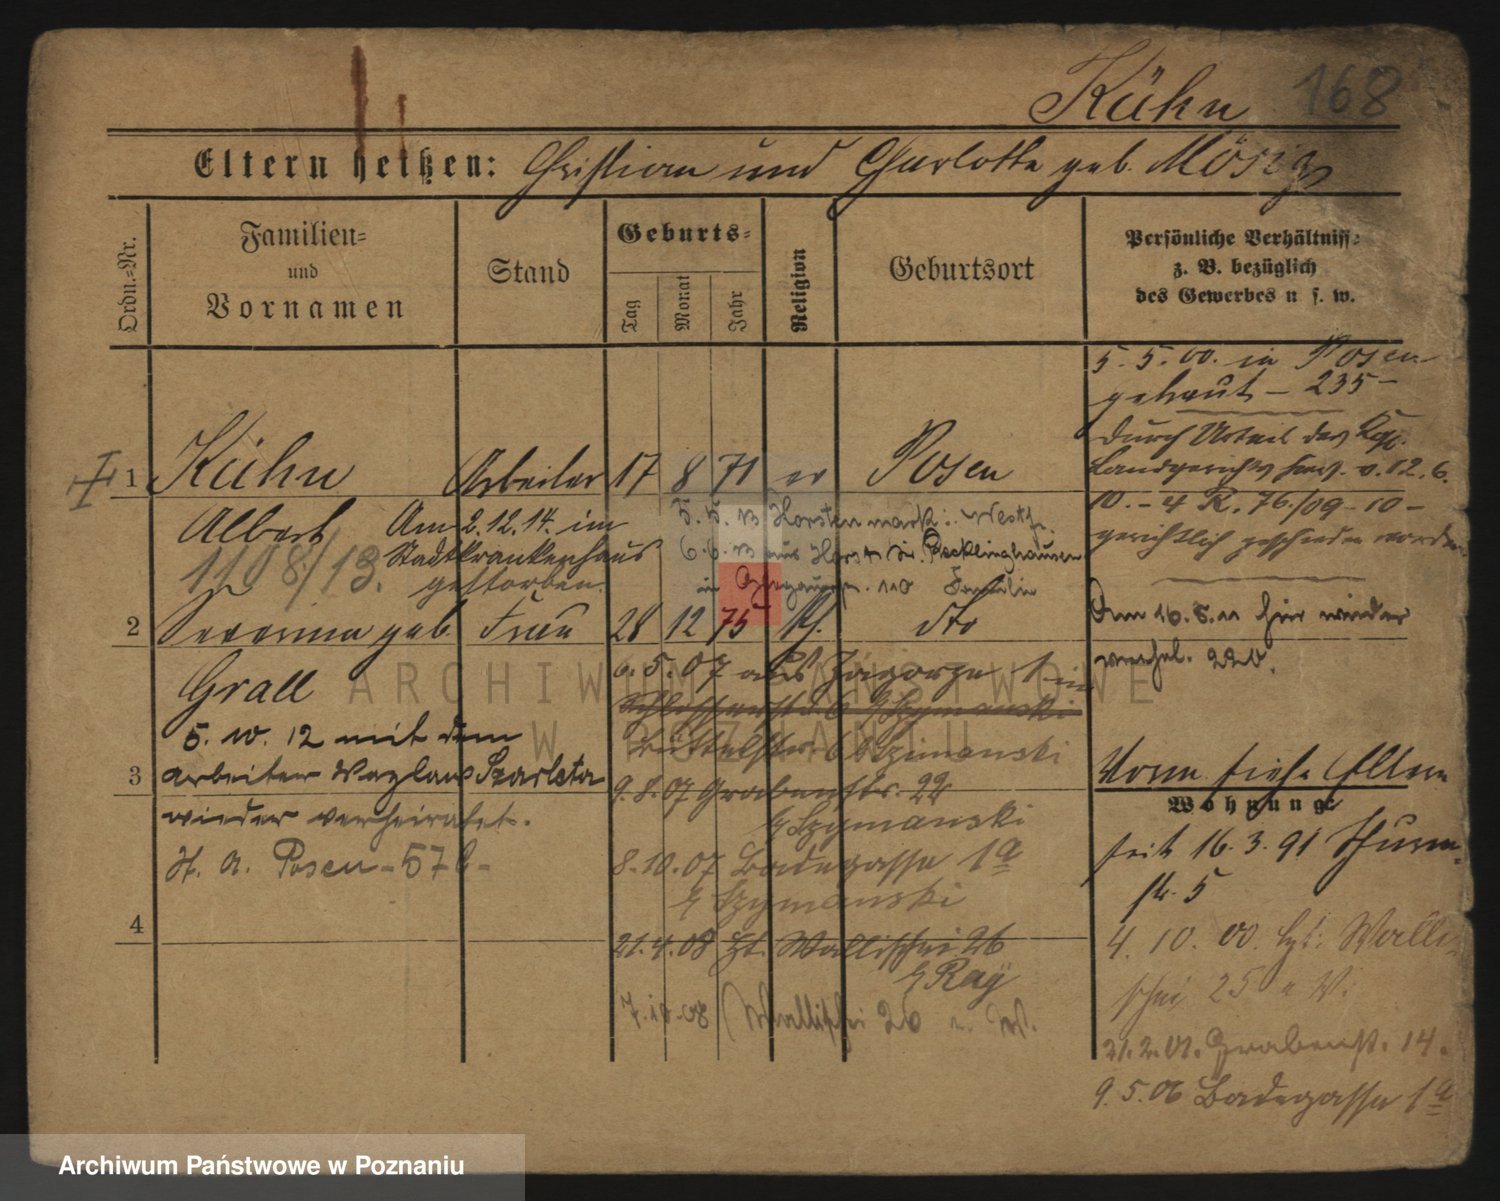 Kühn 168
Eltern heißen: Christian und Charlotte geb. Mösig
Ordn.=Nr.
Familien=
und
Vornamen
Stand
Geburts=
Tag
Monat
Jahr
Religion
Geburtsort
Persönliche Verhältnisse
z. B. bezüglich
des Gewerbes u. s. w.
5. 5. 00. in Posen
getraut – 235 –
durch Urteil des Kgl.
Landgerichts v. 12. 6.
10. – 4 R. 76/09 – 10 –
gerichtlich geschieden worden
1 Kühn Arbeiter 17 8 71 ev Posen
Albert
Am 2.12.14. im
Stadtkrankenhaus
gestorben.
1108/13.
5. 5. 13 Horstermark i. Westf.
6.6.13 aus Horst Recklinghausen
in Familie
2 geb. Frau 28 12 75 kth. dto
Grall
5. 10. 12 mit dem
3 Arbeiter Wazlaw Szarleta
wieder verheiratet.
H. A. Posen – 576 –
4
6. 5. 07 aus Zagorze 1 in
Szymanski
Büttelstr. 6 Szimanski
9. 8. 07 Grabenstr. 22
b/ Szymanski
8. 10. 07 Badegasse 1a
b/ Szymanski
21. 4. 08 Wallischei 26
b/ Ray
7. 10. 08 Wallischei 26
Am 16. 5. 11 hier wieder
220.
Vorm. siehe Eltern
Wohnung:
seit 16. 3. 91 Thurm-
str. 5
4. 10. 00. Walli-
schei 25
21. 2. 01. Grabenst. 14.
9. 5. 06 Badegasse 1a
ARCHIWUM PAŃSTWOWE
W POZNANIU
Archiwum Państwowe w Poznaniu